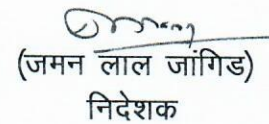 (जमन लाल जांगिड)
निदेशक